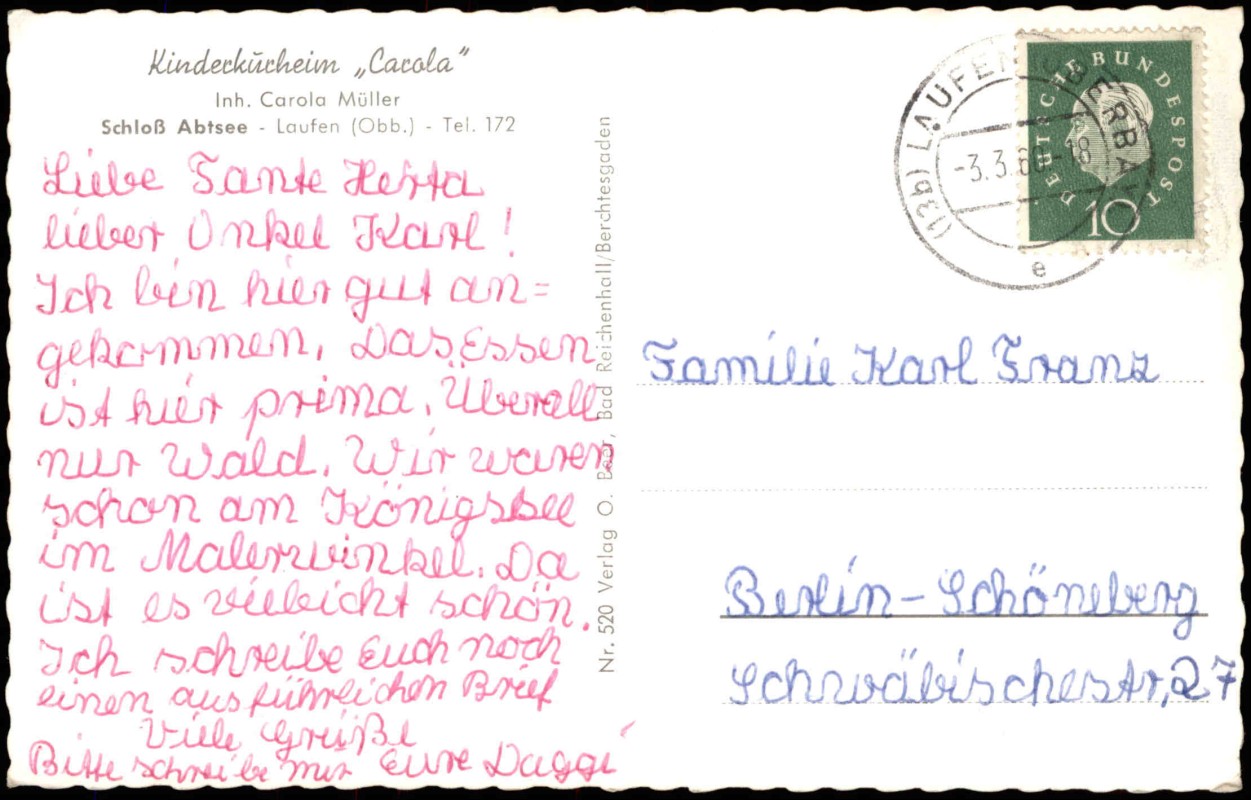 Kinderkurheim „Carola"
Inh. Carola Müller
Schloß Abtsee - Laufen (Obb.) - Tel. 172
Liebe Tante Herta
lieber Onkel Karl!
Ich bin hier gut an=
gekommen. Das Essen
ist hier prima. Überall
nur Wald. Wir waren
schon am Königssee
im Malerwinkel. Da
ist es vielleicht schön.
Ich schreibe Euch noch
einen ausführlichen Brief
Viele Grüße
Bitte schreibe mir Eure Daggi
Nr. 520 Verlag O. Beer, Bad Reichenhall/Berchtesgaden
(13b) LAUFEN (OBERBAY
-3.3.60-18
e
DEUTSCHE BUNDESPOST
10
Familie Karl Franz
Berlin-Schöneberg
Schwäbischestr, 27